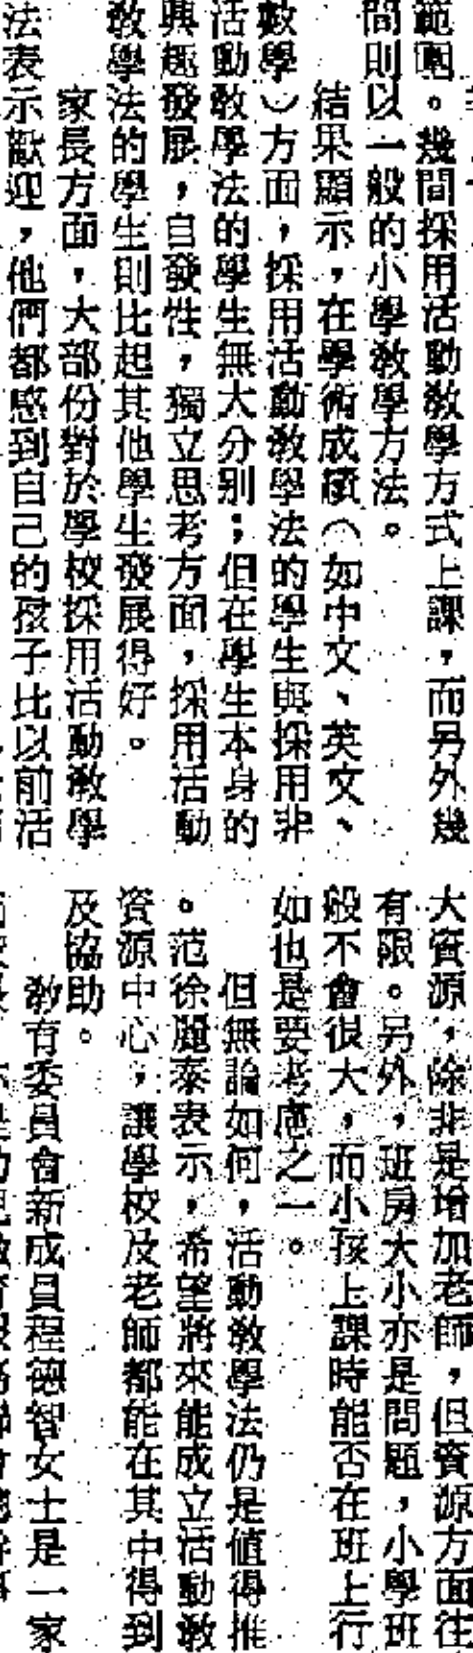 範圍。幾間採用活動教學方式上課，而另外幾
間則以一般的小學教學方法。
結果顯示，在學術成績（如中文、英文、
數學）方面，採用活動教學法的學生與採用非
活動教學法的學生無大分別；但在學生本身的
興趣發展，自發性，獨立思考方面，採用活動
教學法的學生則比起其他學生發展得好。
家長方面，大部份對於學校採用活動教學
法表示歡迎，他們都感到自己的孩子比以前活
大資源，除非是增加老師，但資源方面往
有限。另外，班房大小亦是問題，小學班
般不會很大，而小孩上課時能否在班上行
如也是要考慮之一。
但無論如何，活動教學法仍是值得推
。范徐麗泰表示，希望將來能成立活動教
資源中心，讓學校及老師都能在其中得到
及協助。
教有委員會新成員程德智女士是一家